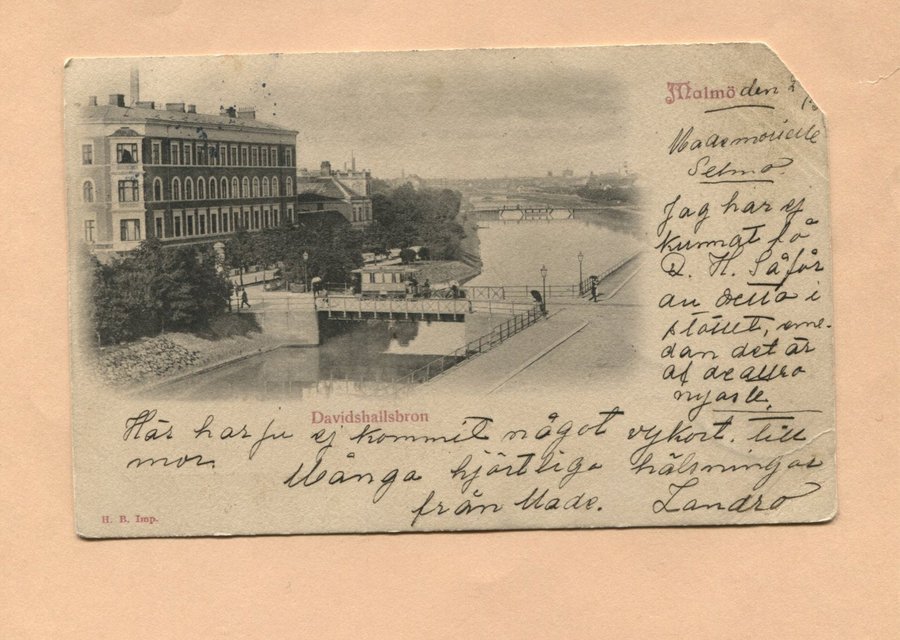 Malmö den
Mademoiselle
Selma.
Jag har ej
kunnat få
D. H. Såfår
au detta i
stället, eme-
dan det är
af de allra
nyaste.
Davidshallsbron
Här har ju ej kommit något vykort. till
mor.
Många hjärtliga hälsningar
från Made. Landro
H. B. Imp.